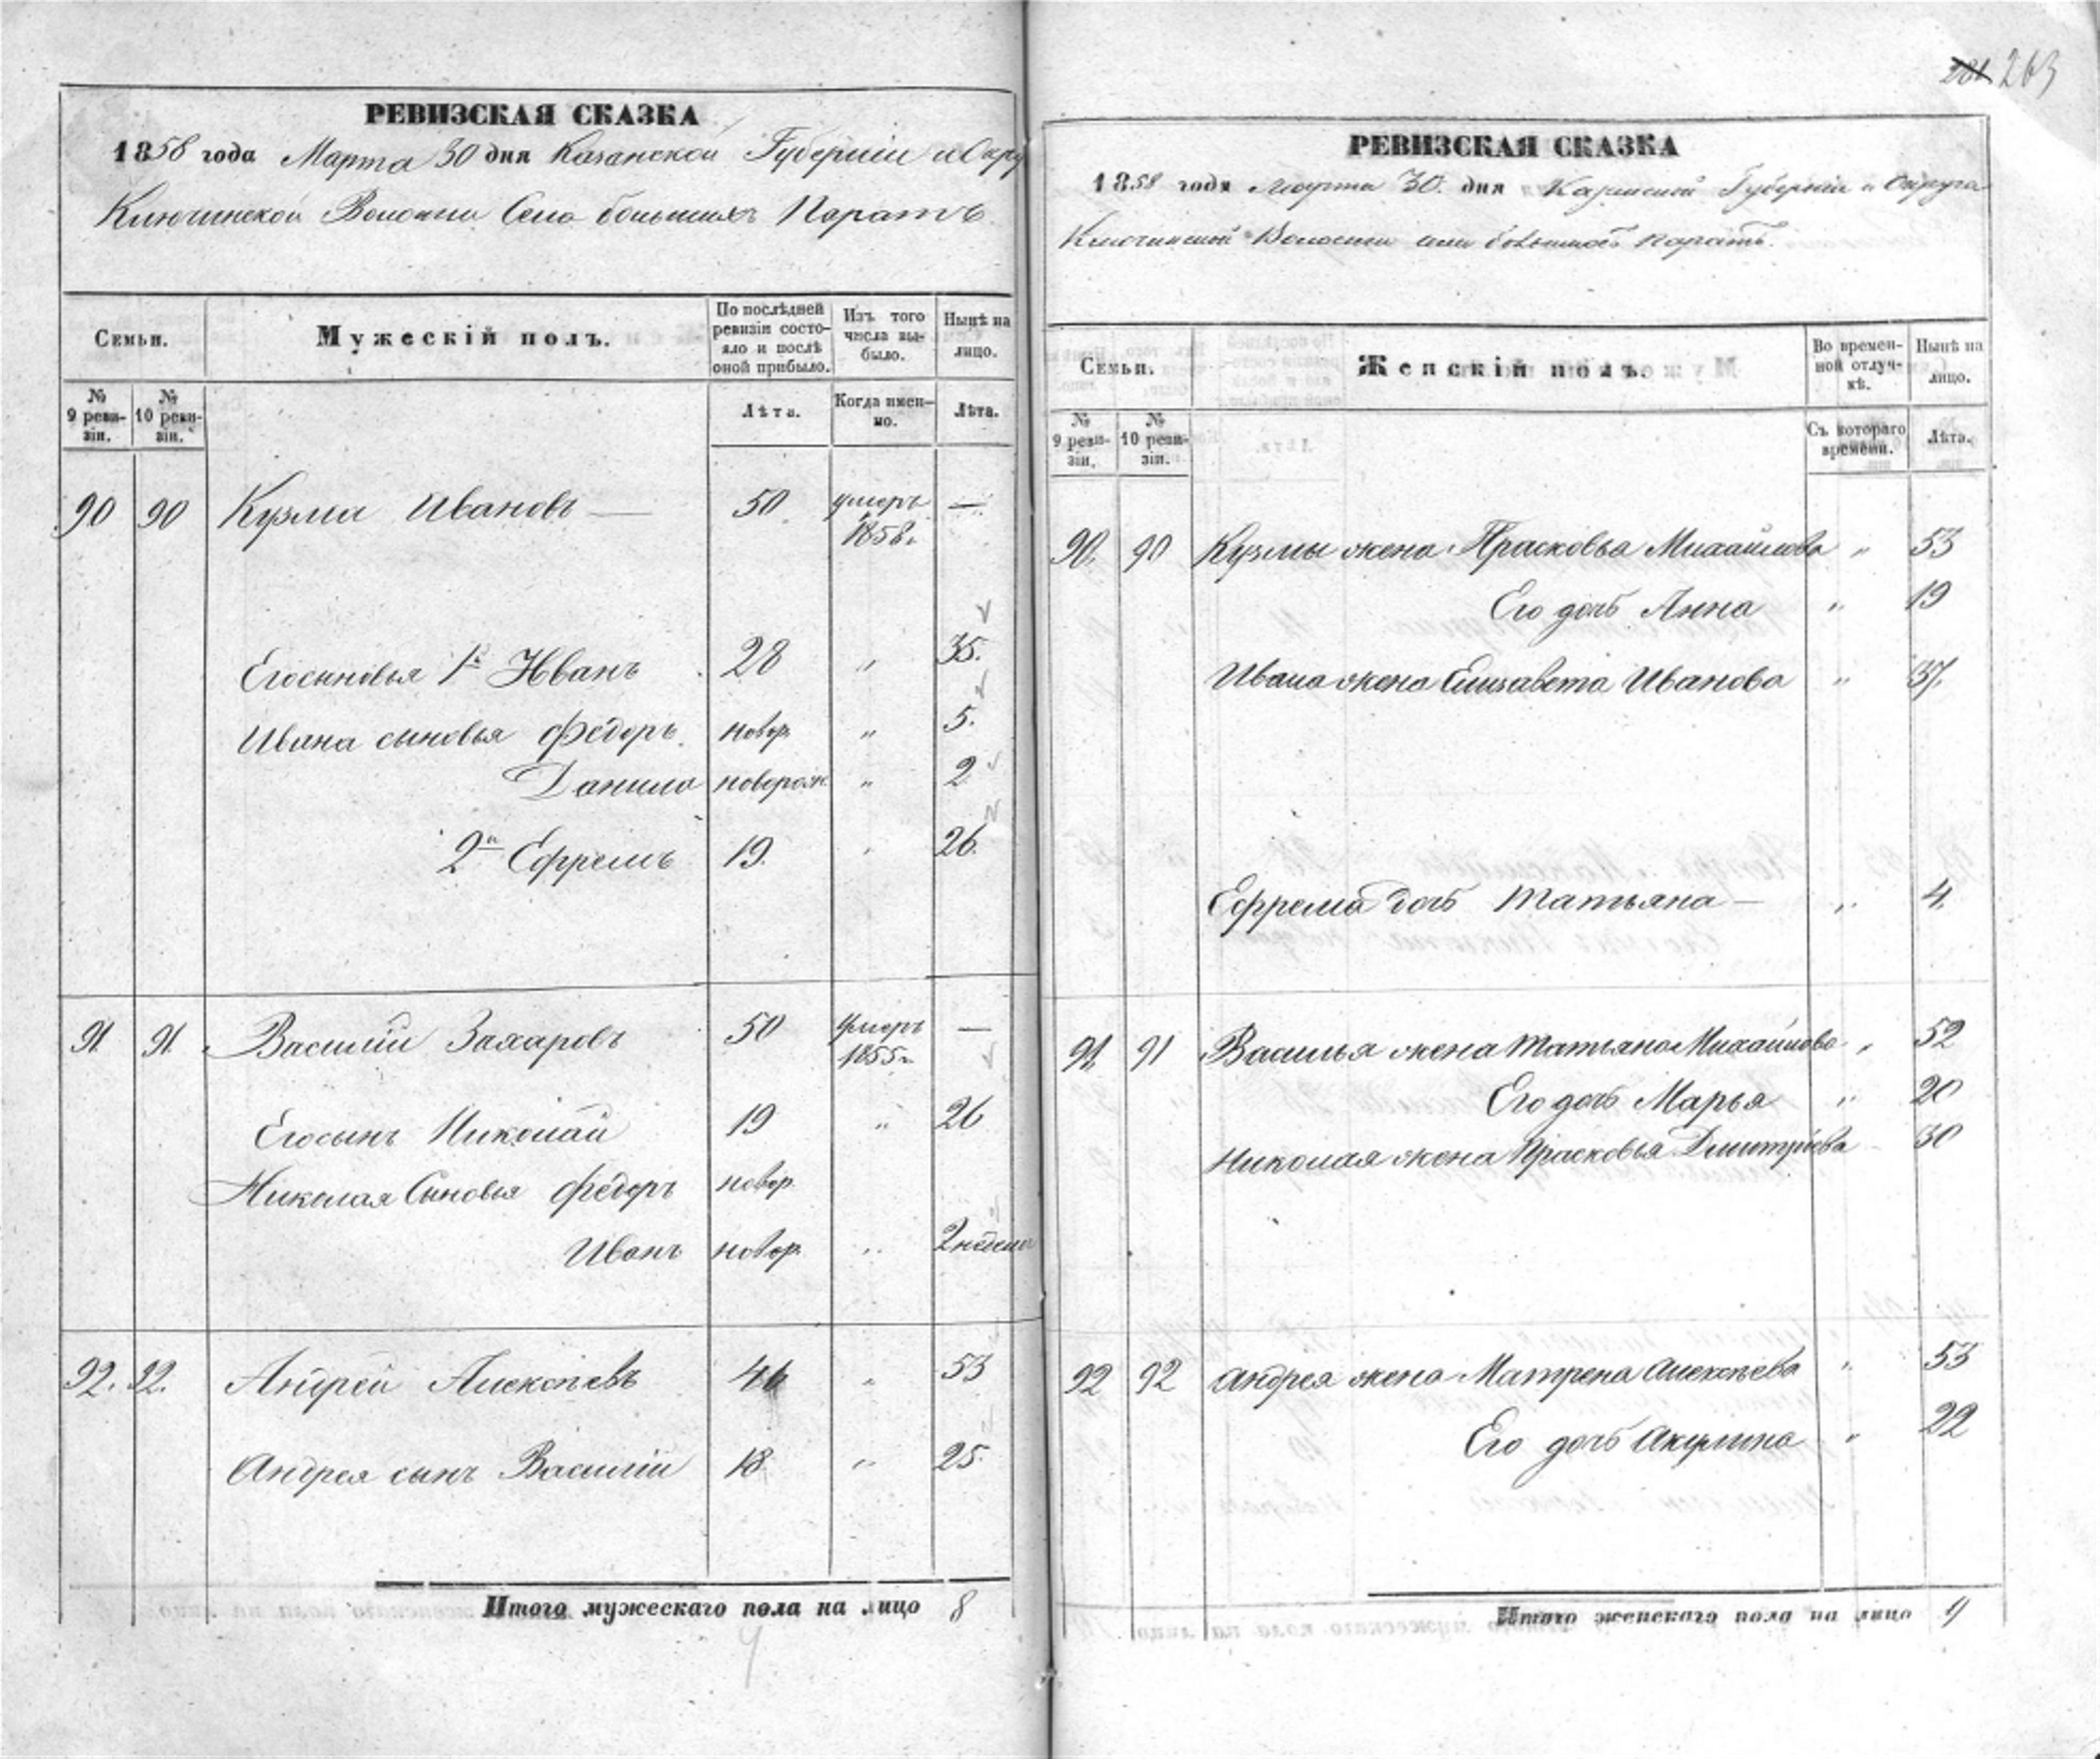 РЕВИЗСКАЯ СКАЗКА
1858 года Марта 30 дня Казанской Губерніи и Окру
Ключинской Волости Села большихъ Паратъ
Семьи.
Мужескій полъ.
По послѣдней ревизіи состояло и послѣ оной прибыло.
Изъ того числа выбыло.
Нынѣ на лицо.
№ 9 ревизіи.
№ 10 ревизіи.
Лѣта.
Когда именно.
Лѣта.
90 90 Кузма Ивановъ — 50 умеръ 1858 г. —
Его сыновья 1й Иванъ 28 " 35.
Ивана сыновья Федоръ новор. " 5.
Данило новорож. " 2
2й Ефремъ 19. " 26.
91. 91. Василій Захаровъ 50 умеръ 1855 г. —
Его сынъ Николай 19 " 26
Николая Сыновья Федоръ новор.
Иванъ новор. " 2 недели
92. 92. Андрей Алексѣевъ 46 " 53
Андрея сынъ Василій 18 " 25.
Итого мужескаго пола на лицо 8
281 263
РЕВИЗСКАЯ СКАЗКА
1858 года Марта 30. дня Казанской Губерніи и Округа
Ключинской Волости села большихъ Паратъ.
Семьи.
Женскій полъ.
Во временной отлучкѣ.
Нынѣ на лицо.
№ 9 ревизіи.
№ 10 ревизіи.
Съ котораго времени.
Лѣта.
90. 90 Кузмы жена Прасковья Михайлова " 53
Его дочь Анна " 19
Ивана жена Елизавета Иванова " 37.
Ефрема дочь Татьяна — " 4.
91. 91 Василья жена Татьяна Михайлова " 52
Его дочь Марья " 20
Николая жена Прасковья Дмитріева 30
92 92 Андрея жена Матрена Алексѣева " 53
Его дочь Акулина " 22
Итого женскаго пола на лицо 9